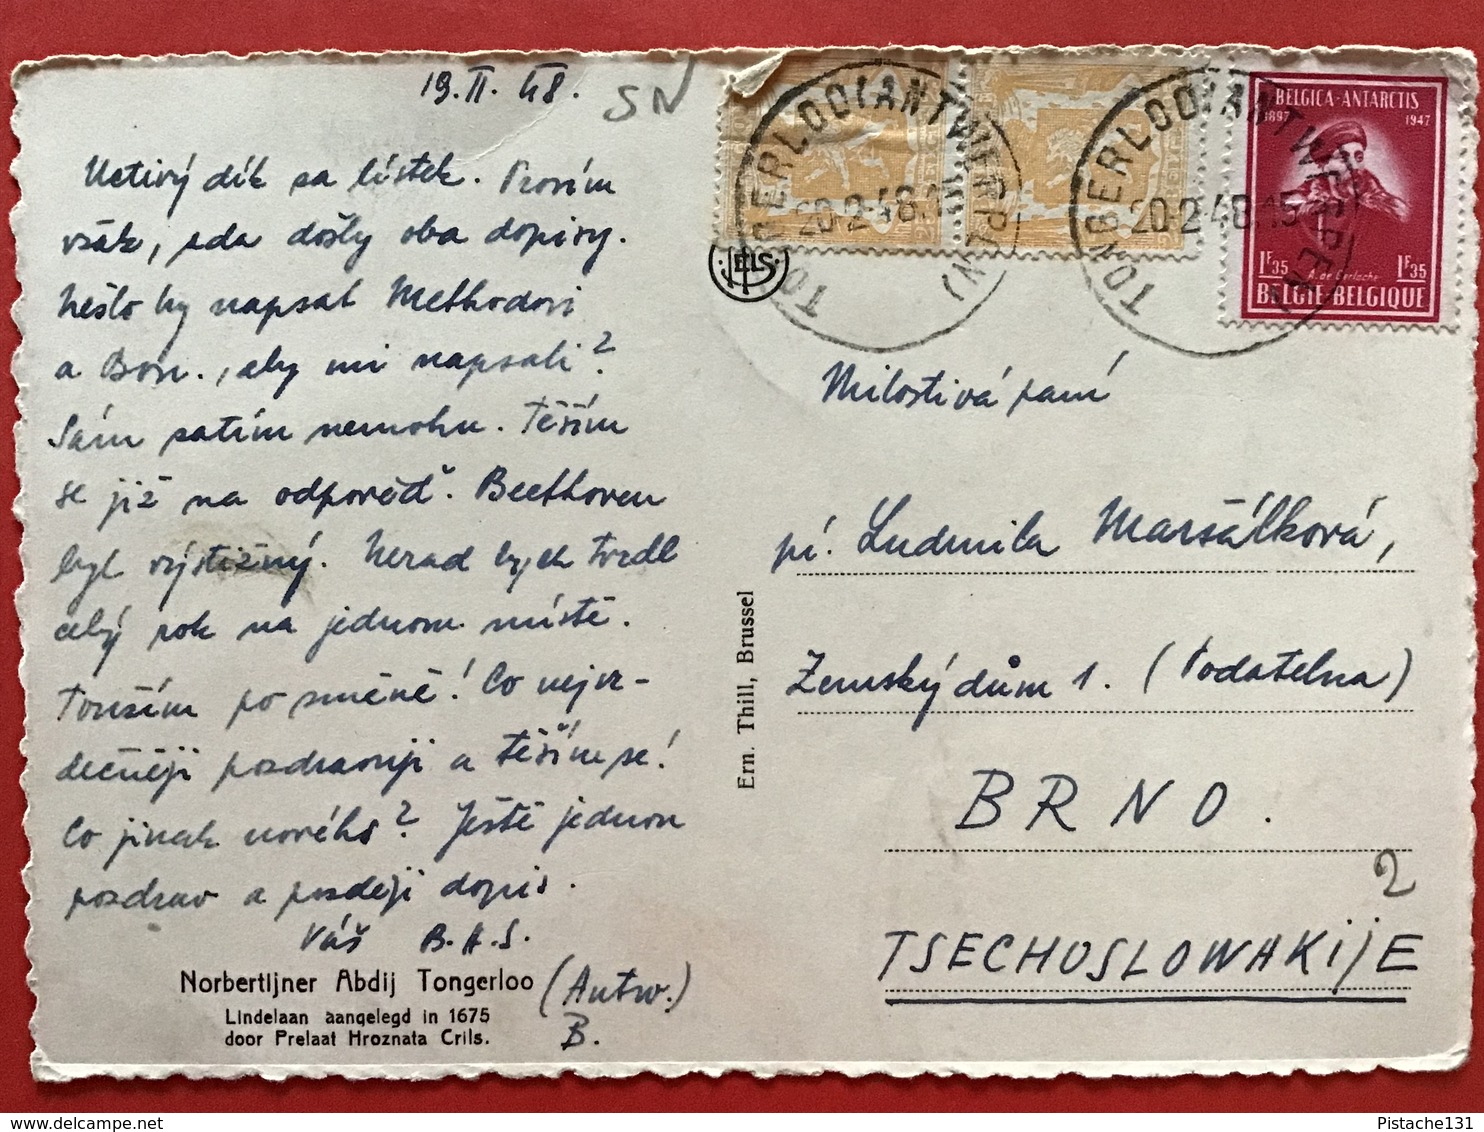 19. II. 48.
SN
Uctivý dík za lístek. Prosím
však, zda došly oba dopisy.
Nešlo by napsat Methodovi
a Bon., aby mi napsali?
Sám zatím nemohu. Těším
se již na odpověď. Beethoven
byl výstižný. Nerad bych tvrdl
celý rok na jednom místě.
Toužím po směně! Co nejsr-
dečněji pozdravuji a těším se!
Co jinak nového? Ještě jednou
pozdrav a pozdeji dopis.
Váš B.A.S.
Norbertijner Abdij Tongerloo (Antw.)
Lindelaan aangelegd in 1675
door Prelaat Hroznata Crils. B.
Ern. Thill, Brussel
NELS
TONGERLOO (ANTWERPEN)
20-2-48
TONGERLOO (ANTWERPEN)
20-2-48.15
BELGICA-ANTARCTIS
1897 1947
A. de Gerlache
1F35 1F35
BELGIE-BELGIQUE
Milostivá paní
pí. Ludmila Maršálková,
Zemský dům 1. (Podatelna)
BRNO.
2
TSECHOSLOWAKIJE
Pistache131